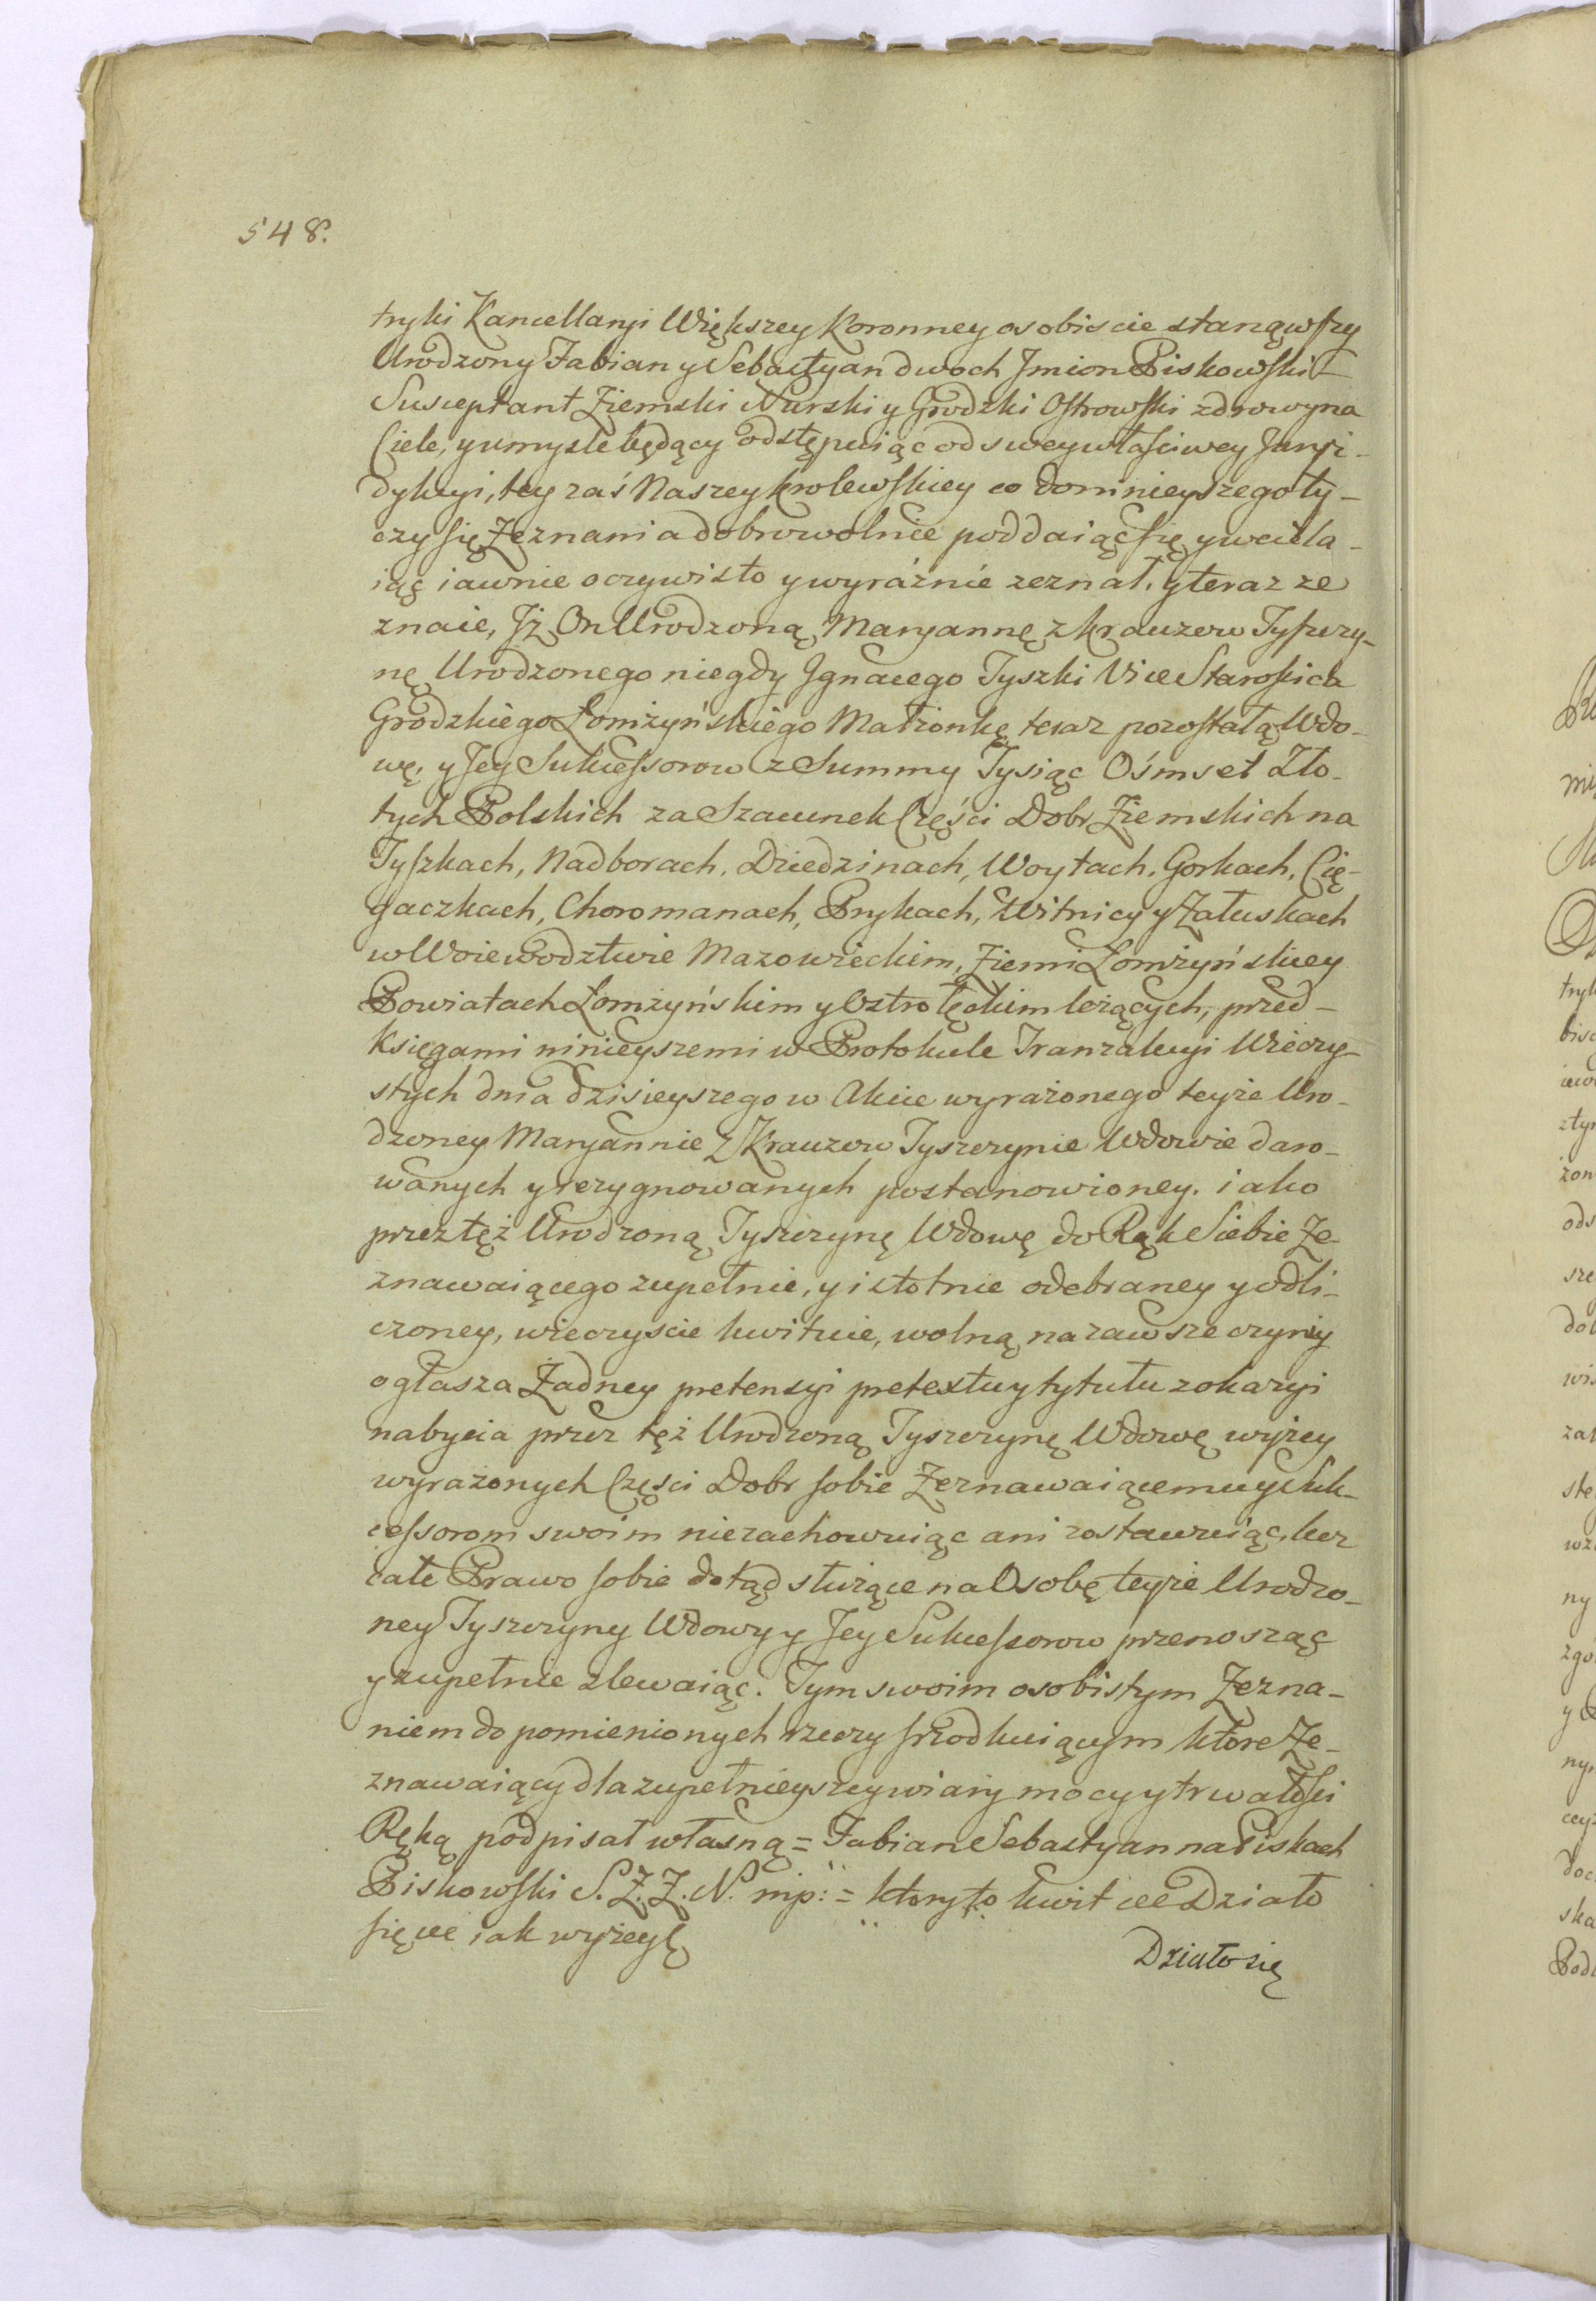 548.
tryki Kancellaryi Większey Koronney osobiscie stanąwszy
Urodzony Fabian y Sebastyan dwoch Jmion Piskowski
Susceptant Ziemski Nurski y Grodzki Ostrowski zdrowy na
Ciele, y umysle będący odstępuiąc od swey własciwey Juryz-
dykcyi, tey zaś Naszey krolewskiey co do ninieyszego ty-
czy się Zeznania dobrowolnie poddaiąc się y wciela-
iąc iawnie oczywisto y wyraźnie zeznał, y teraz ze
znaie, Jż On Urodzoną Maryannę z Krauzow Tyszczy-
nę Urodzonego niegdy Jgnacego Tyszki Vice Starosica
Grodzkiego Łomżyńskiego Małzonkę teraz pozostałą Wdo-
wę, y Jey Sukcessorow z Summy Tysiąc Ośmset Zło-
tych Polskich za Szacunek Części Dobr Ziemskich na
Tyszkach, Nadborach, Dziedzinach, Woytach, Gorkach, Cię-
gaczkach, Choromanach, Prykach, Witnicy y Załuskach
w Woiewodztwie Mazowieckim, Ziemi Łomżyńskiey
Powiatach Łomżyńskim y Ostrołęckim leżących, przed-
Księgami ninieyszemi w Protokule Tranzakcyi Wieczy-
stych dnia dzisieyszego w Akcie wyrażonego teyże Uro-
dzoney Maryannie z Krauzow Tyszczynie Wdowie daro-
wanych y rezygnowanych postanowioney, iako
przez tęż Urodzoną Tyszczynę Wdowę do Rąk Siebie Ze-
znawaiącego zupełnie, y istotnie odebraney y odli-
czoney, wieczyscie kwituie, wolną na zawsze czyni y
ogłasza Żadney pretensyi pretextu y tytułu z okazyi
nabycia przez tęż Urodzoną Tyszczynę Wdowę wyżey
wyrażonych Części Dobr sobie Zeznawaiącemu y Suk-
cessorom swoim niezachowuiąc ani zostawuiąc, lecz
całe Prawo sobie dotąd służące na Osobę teyże Urodzo-
ney Tyszczyny Wdowy y Jey Sukcessorow przenosząc
y zupełnie zlewaiąc. Tym swoim osobistym Zezna-
niem do pomienionych rzeczy srzodkuiącym ktore Ze-
znawaiący dla zupełnieyszey wiary mocy y trwałosci
Ręką podpisał własną = Fabian Sebastyan na Piskach
Piskowski S. Z. Z. N. mp: = ktory to kwit etc Działo
się etc iak wyżey
Działo się